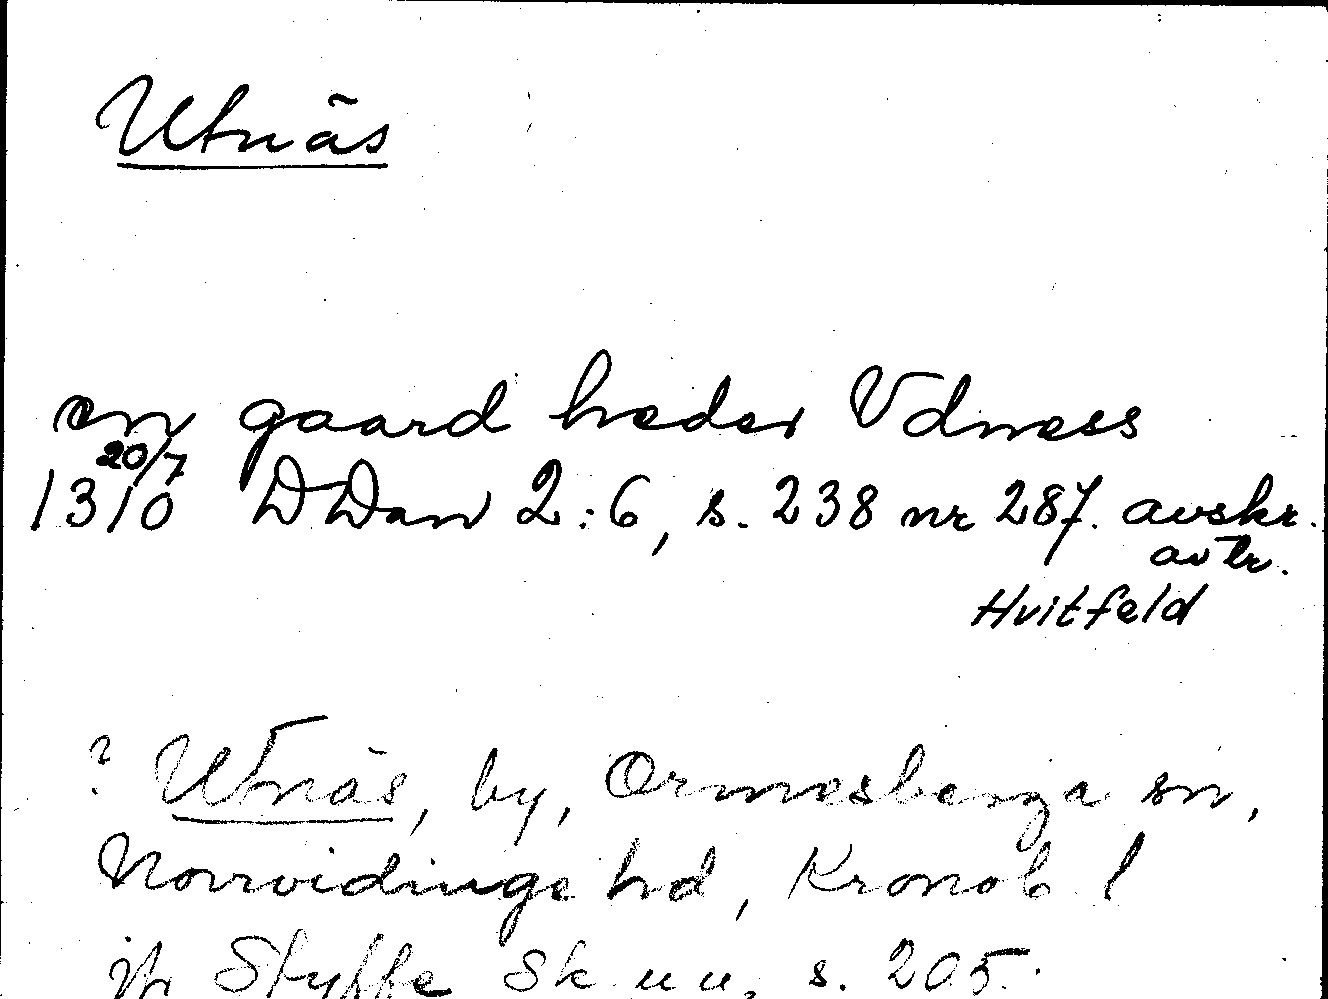 Utnäs
en gaard heder Vdness
20/7
1310 DDan 2:6, s. 238 nr 287. avskr.
av tr.
Hvitfeld
? Utnäs, by, Ormesberga sn,
Norrvidinge hd, Kronob l
jfr Styffe Sk u u, s. 205.